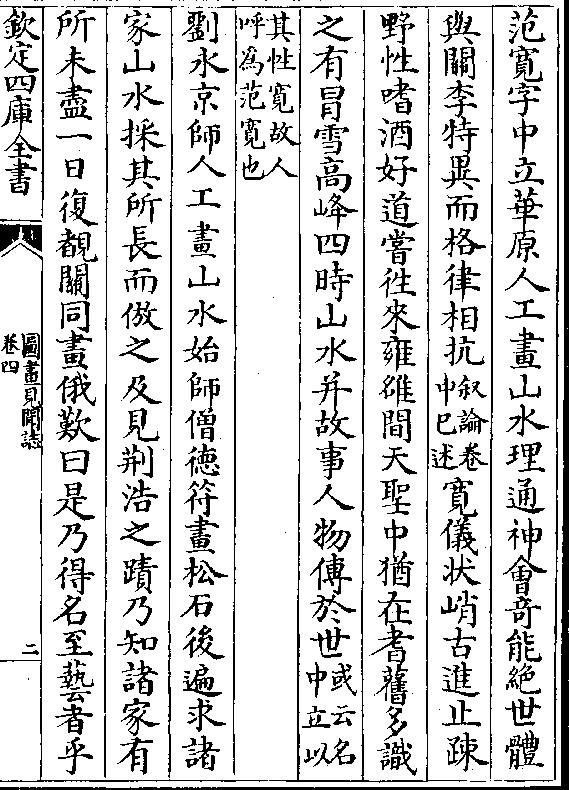 范寛字中立華原人工畫山水理通神㑹竒能絶世體
與關李特異而格律相抗叙論卷中已述寛儀狀峭古進止疎
野性嗜酒好道嘗往來雍雒間天聖中猶在耆舊多識
之有冒雪高峰四時山水并故事人物傳於世或云名中立以
其性寛故人呼為范寛也
劉永京師人工畫山水始師僧徳符畫松石後遍求諸
家山水採其所長而倣之及見荆浩之蹟乃知諸家有
所未盡一日復覩關同畫俄歎曰是乃得名至藝者乎
欽定四庫全書
圖畫見聞誌
卷四
二